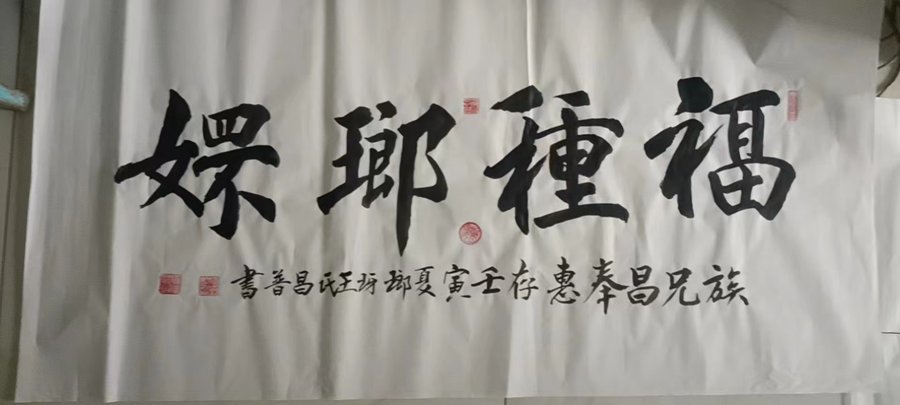 福種瑯嬛
族兄昌奉惠存壬寅夏瑯玡王氏昌普書